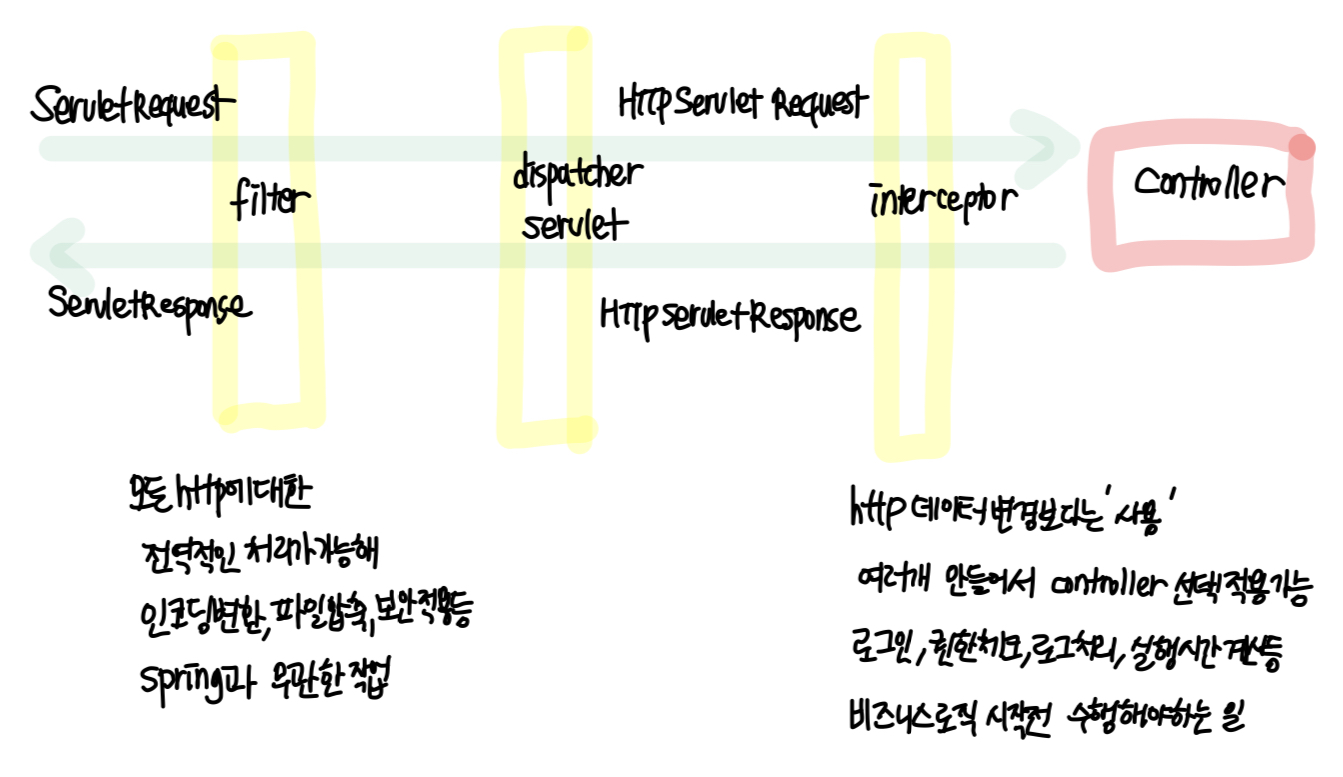 ServletRequest
HTTP Servlet Request
filter
dispatcher
servlet
interceptor
controller
ServletResponse
HTTP servletResponse
모든 http에 대한
전역적인 처리가 가능해
인코딩변환, 파일압축, 보안적용등
spring과 무관한 작업
http 데이터 변경보다는 '사용'
여러개 만들어서 controller 선택적용가능
로그인, 권한체크, 로그처리, 실행시간계산등
비즈니스로직 시작전 수행해야하는 일